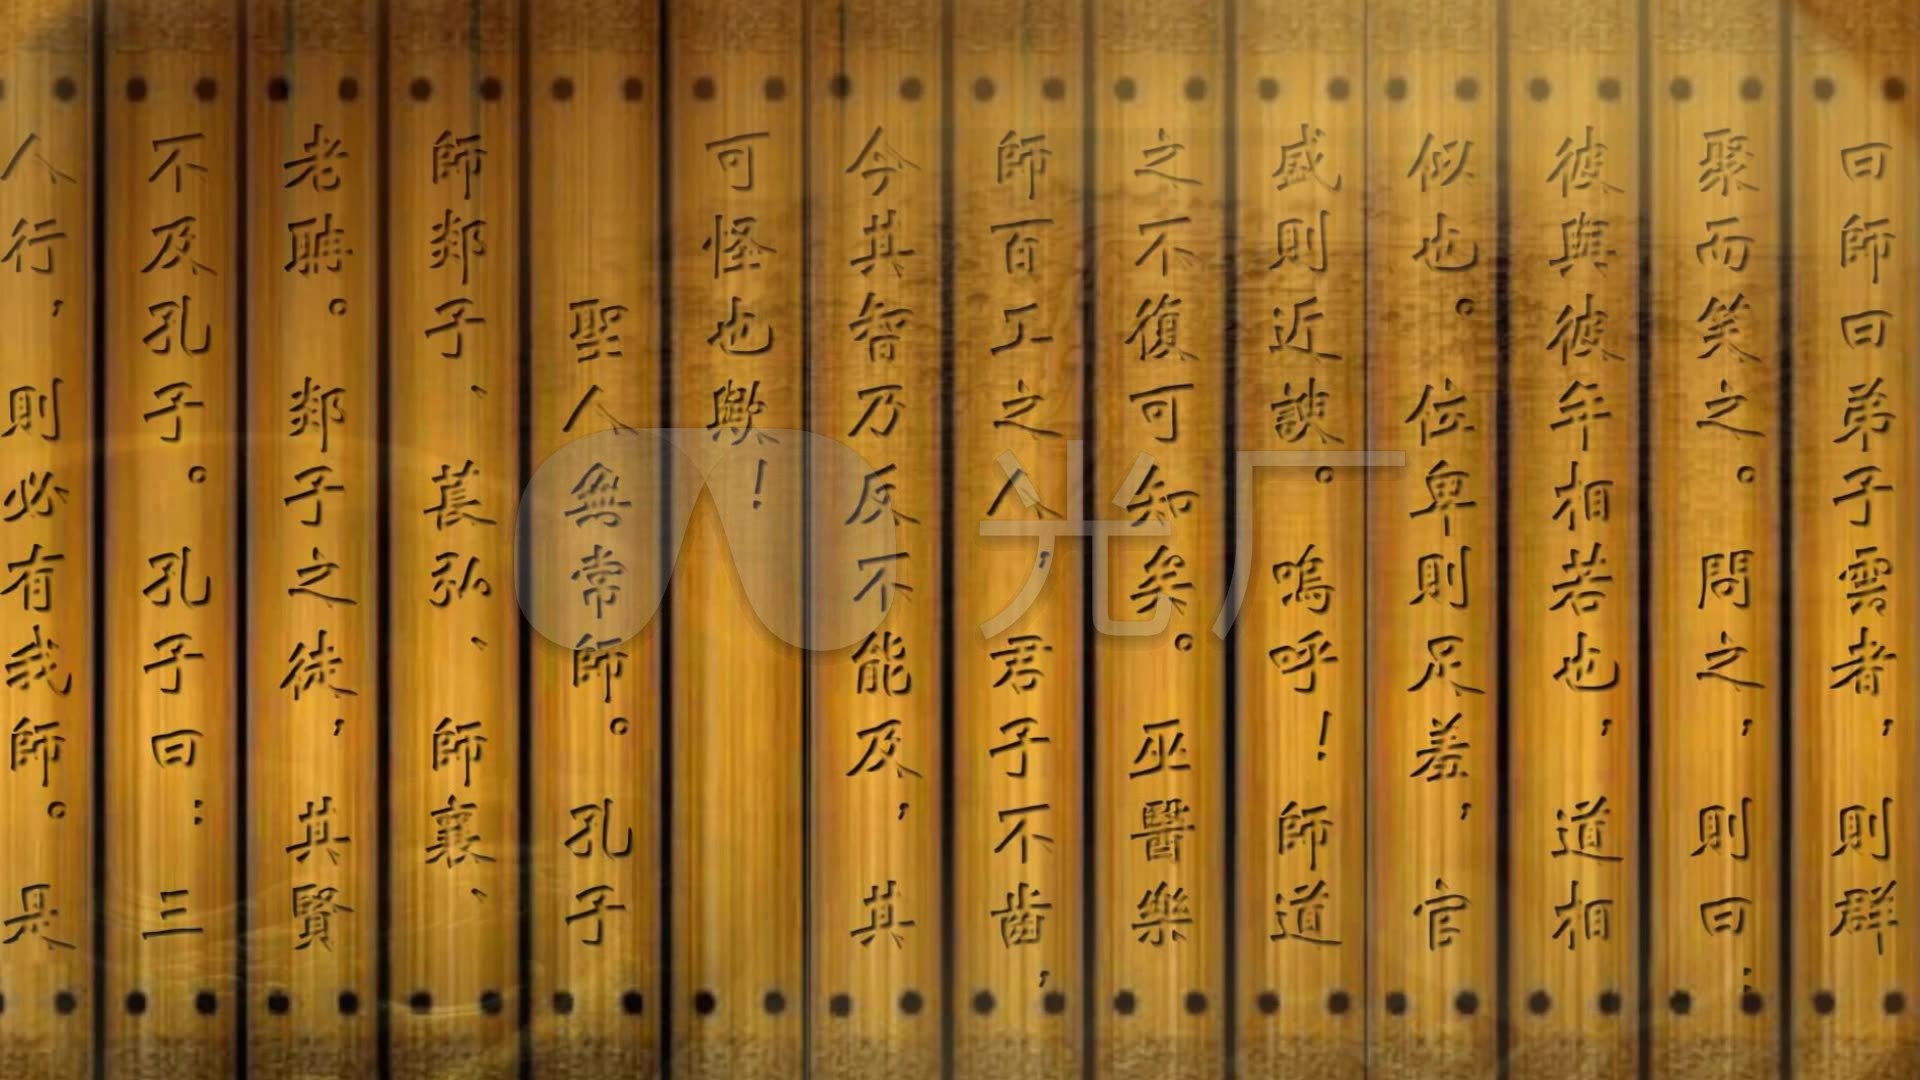 曰師曰弟子雲者，則群
聚而笑之。問之，則曰：
彼與彼年相若也，道相
似也。位卑則足羞，官
盛則近諛。嗚呼！師道
之不復可知矣。巫醫樂
師百工之人，君子不齒，
今其智乃反不能及，其
可怪也歟！
聖人無常師。孔子
師郯子、萇弘、師襄、
老聃。郯子之徒，其賢
不及孔子。孔子曰：三
人行，則必有我師。是
光厂